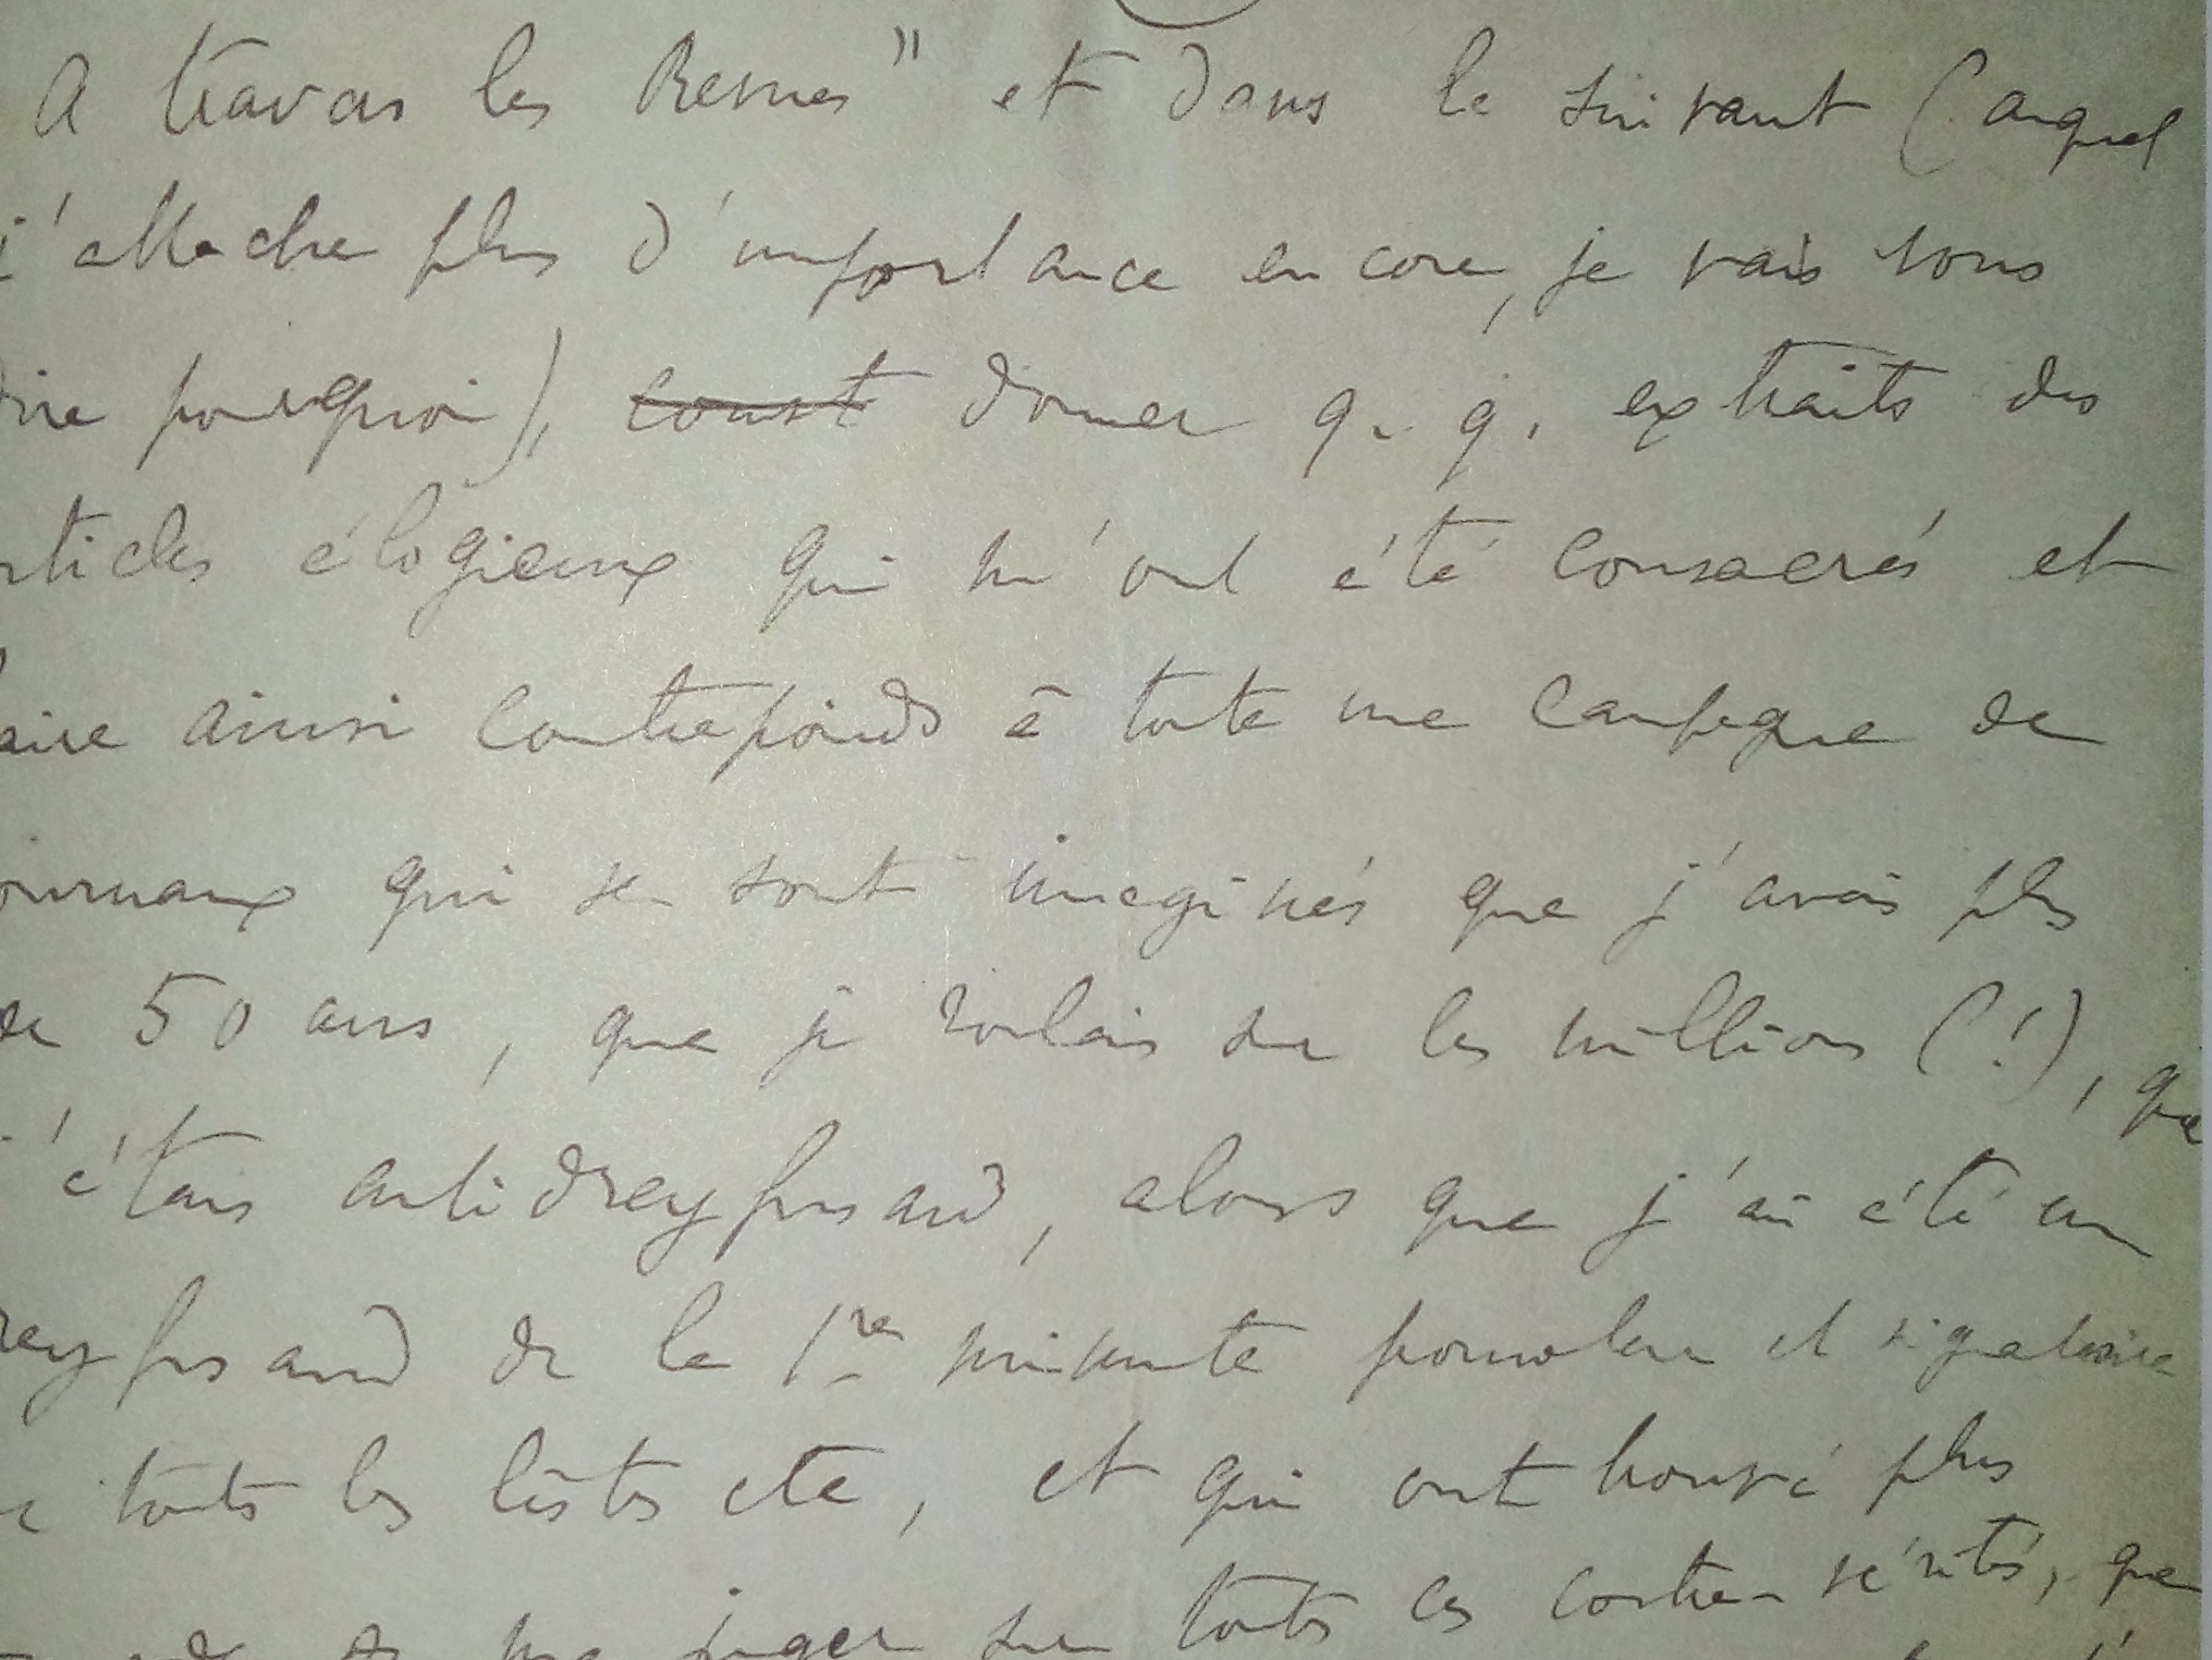 A travers les Revues" et dans le suivant (auquel
j'attache plus d'importance encore, je vais vous
dire pourquoi), const donner q. q. extraits des
rticles élogieux qui m'ont été consacrés et
aire ainsi contrepoids à toute une campagne de
ournaux qui se sont imaginés que j'avais plus
de 50 ans, que je roulais sur les millions (!), que
j'étais antidreyfusard, alors que j'ai été un
reyfusard de la 1re minute promoteur et signataire
de toutes les listes etc, et qui ont trouvé plus
de me juger sur toutes ces contre-vérités, que